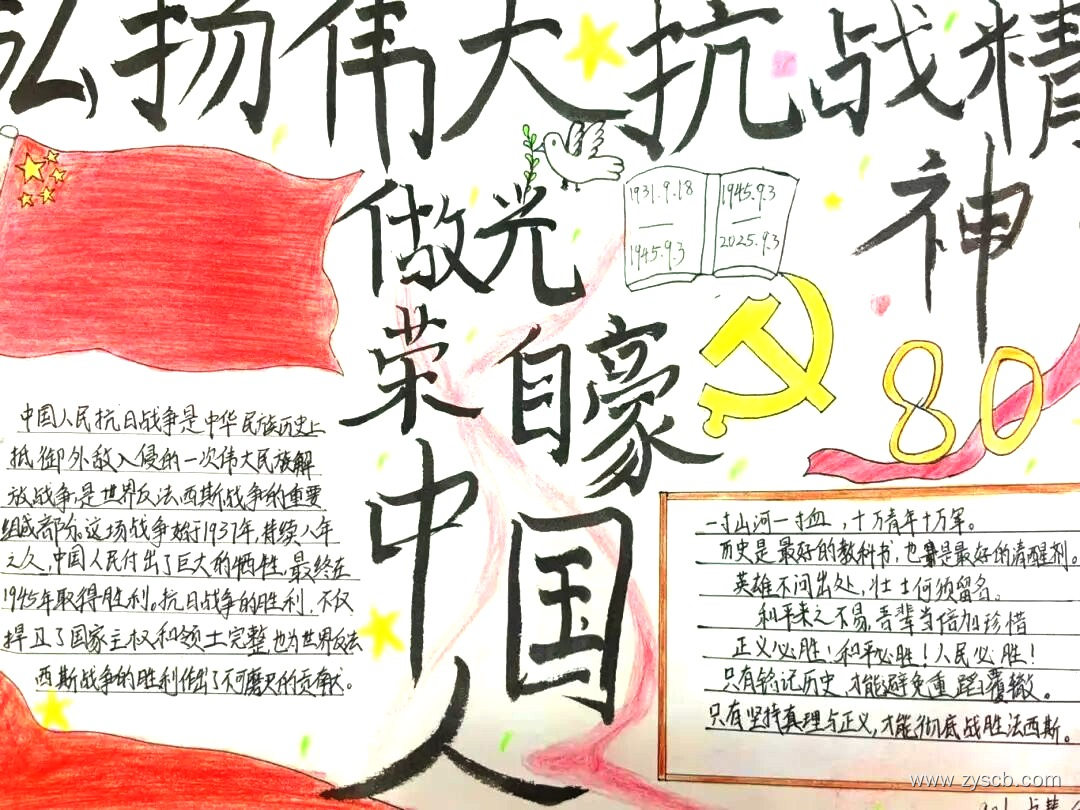 弘扬伟大抗战精
神
做光
荣自豪
中国
人
1931.9.18
—
1945.9.3
1945.9.3
—
2025.9.3
80
中国人民抗日战争是中华民族历史上
抵御外敌入侵的一次伟大民族解
放战争,是世界反法西斯战争的重要
组成部分。这场战争始于1937年,持续八年
之久,中国人民付出了巨大的牺牲,最终在
1945年取得胜利。抗日战争的胜利,不仅
捍卫了国家主权和领土完整,也为世界反法
西斯战争的胜利作出了不可磨灭的贡献。
一寸山河一寸血,十万青年十万军。
历史是最好的教科书,也是最好的清醒剂。
英雄不问出处,壮士何须留名。
和平来之不易,吾辈当倍加珍惜
正义必胜!和平必胜!人民必胜!
只有铭记历史,才能避免重蹈覆辙。
只有坚持真理与正义,才能彻底战胜法西斯。
www.zyscb.com